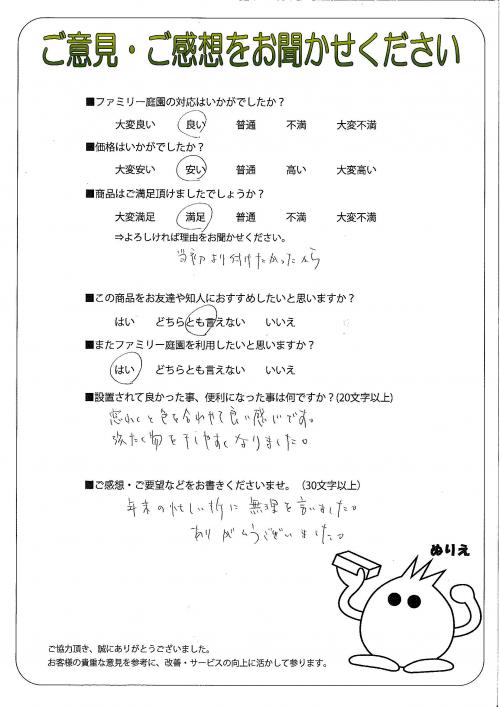 ご意見・ご感想をお聞かせください
■ファミリー庭園の対応はいかがでしたか？
大変良い 良い 普通 不満 大変不満
■価格はいかがでしたか？
大変安い 安い 普通 高い 大変高い
■商品はご満足頂けましたでしょうか？
大変満足 満足 普通 不満 大変不満
⇒よろしければ理由をお聞かせください。
当初より付けたかったから
■この商品をお友達や知人におすすめしたいと思いますか？
はい どちらとも言えない いいえ
■またファミリー庭園を利用したいと思いますか？
はい どちらとも言えない いいえ
■設置されて良かった事、便利になった事は何ですか？(20文字以上)
と色を合わせて良い感じです。
物を干しやすくなりました。
■ご感想・ご要望などをお書きくださいませ。（30文字以上）
年末の忙しい折に無理を言いました。
ありがとうございました。
ぬりえ
ご協力頂き、誠にありがとうございました。
お客様の貴重な意見を参考に、改善・サービスの向上に活かして参ります。